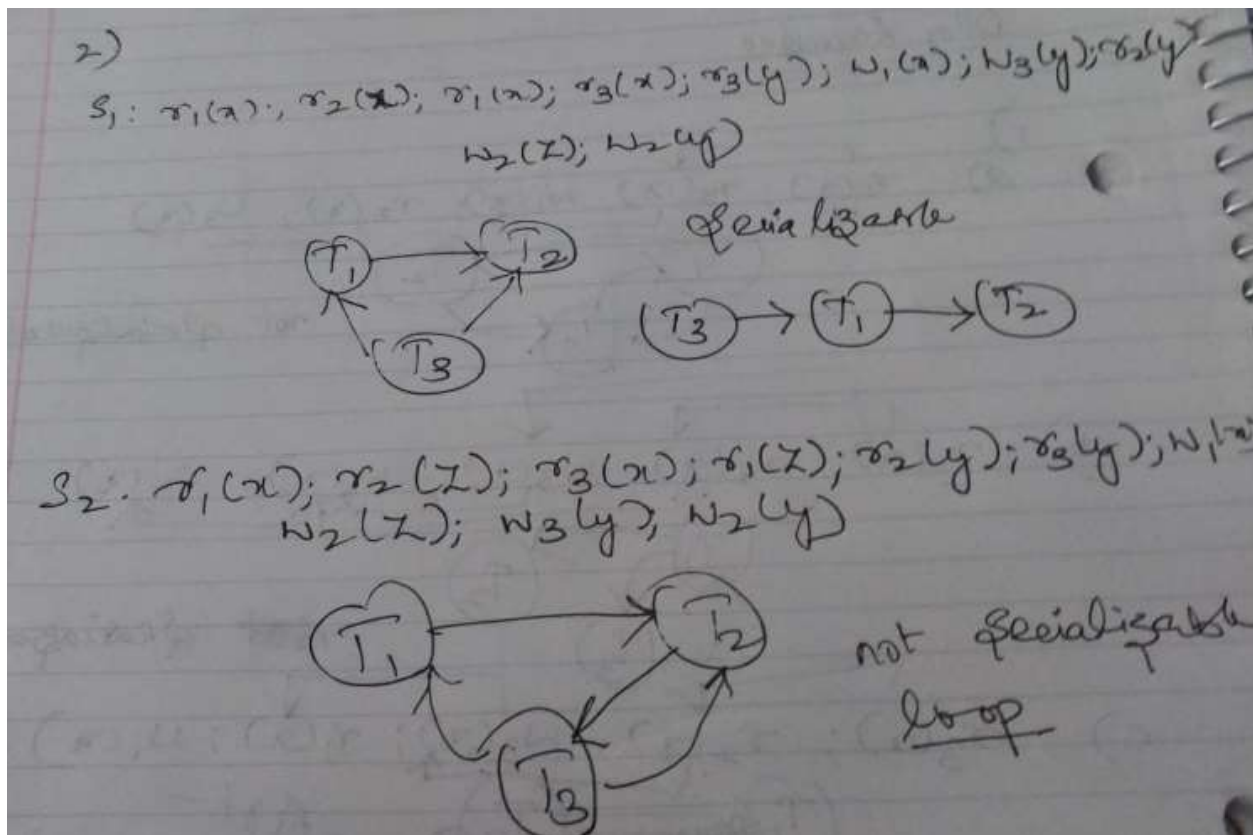 2)
S₁: r₁(x); r₂(x); r₁(x); r₃(x); r₃(y); w₁(x); w₃(y); r₂(y)
w₂(Z); w₂(y)
T₁ T₂ Serializable
T₃ T₃ T₁ T₂
S₂. r₁(x); r₂(Z); r₃(x); r₁(Z); r₂(y); r₃(y); w₁(x)
w₂(Z); w₃(y); w₂(y)
T₁ T₂ not Serializable
loop
T₃